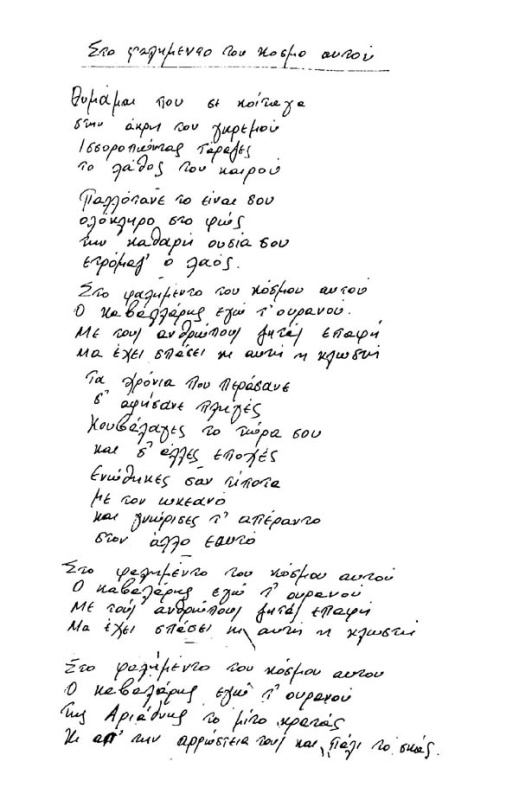 Στο φαλημέντο του κόσμο αυτού
Θυμάμαι που σε κοίταγα
στην άκρη του γκρεμού
Ισσοροπώντας τάραζες
το λάθος του καιρού
Παλλότανε το είναι σου
ολόκληρο στο φώς
την καθαρή ουσία σου
ετρόμαξ' ο λαός.
Στο φαλημέντο του κόσμου αυτού
Ο καβαλλάρης εγώ τ' ουρανού.
Με τους ανθρώπους ζητάς επαφή
Μα έχει σπάσει κι αυτή η κλωστή
Τα χρόνια που περάσανε
σ' αφήσανε πληγές
Κουβάλαγες το τώρα σου
και σ' άλλες εποχές
Ενώθηκες σαν τίποτα
με τον ωκεανό
και γνώρισες τ' απέραντο
στον άλλο εαυτό
Στο φαλημέντο του κόσμου αυτού
Ο καβαλάρης εγώ τ' ουρανού
Με τους ανθρώπους ζητάς επαφή
Μα έχει σπάσει κι αυτή η κλωστή
Στο φαλημέντο του κόσμου αυτου
Ο καβαλάρης εγώ τ' ουρανού
της Αριάδνης το μίτο κρατάς
κι απ' την αρρώστεια τους και πάλι το σκάς.